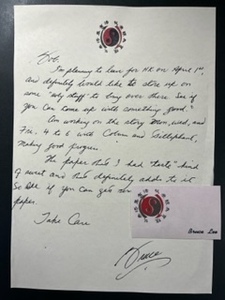 Bob,
I'm planning to leave for HK on April 1st,
and definitely would like to store up on
some "oily stuff" to bring over there. See if
you can come up with something good."
Am working on the story Mon, wed, and
Fri. 4 to 6 with Coburn and Silliphant,
making good progress.
The paper that I had "taste" kind
of sweet and that definitely adds to it.
So see if you can get
paper.
Take Care
Bruce
Bruce Lee